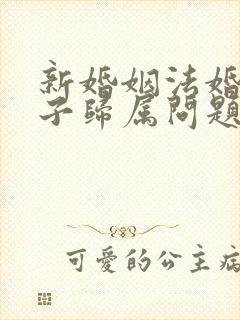 新婚姻法婚
子歸属问题
可愛的公主病